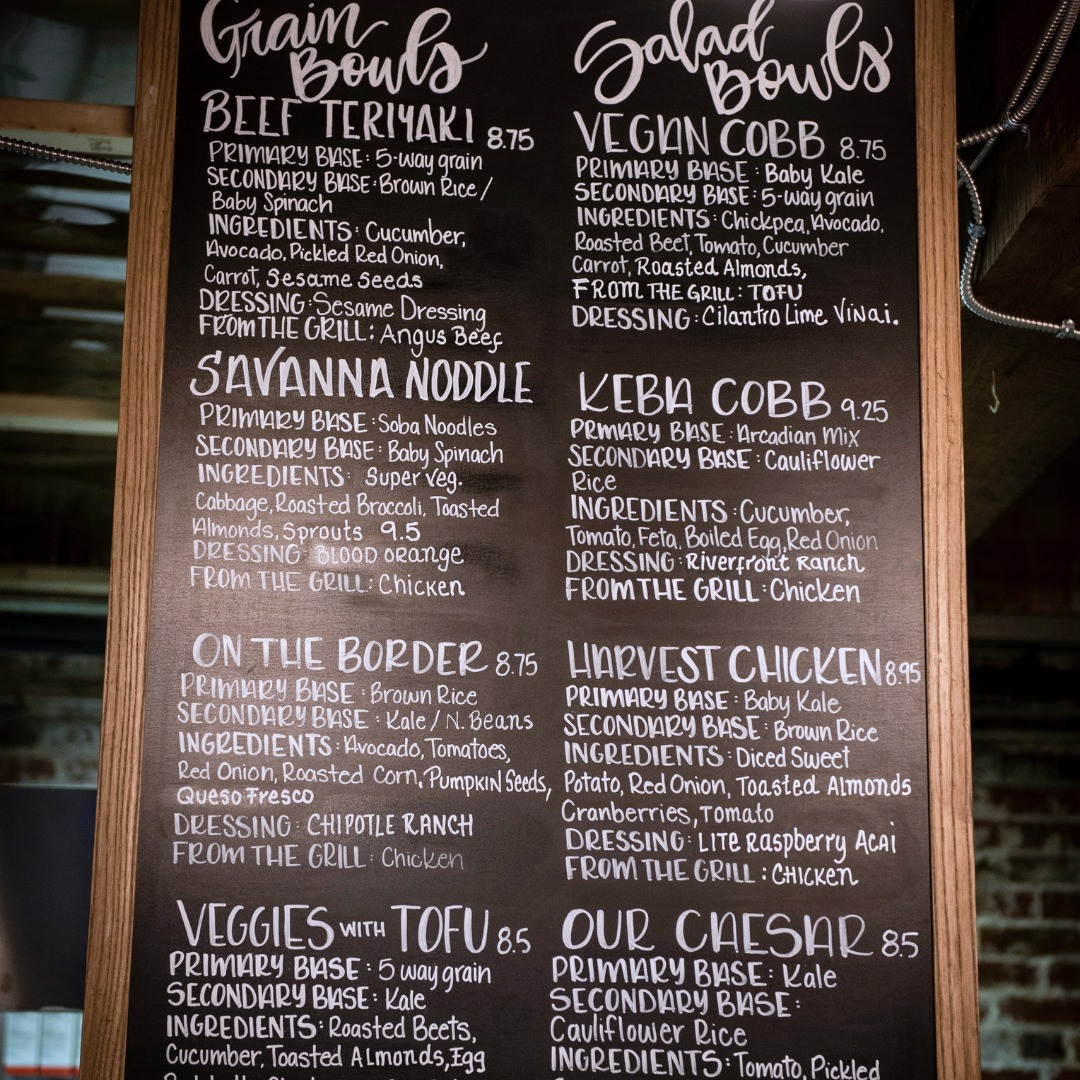 Grain
Bowls
BEEF TERIYAKI 8.75
PRIMARY BASE: 5-way grain
SECONDARY BASE: Brown Rice /
Baby Spinach
INGREDIENTS: Cucumber,
Avocado, Pickled Red Onion,
Carrot, Sesame Seeds
DRESSING: Sesame Dressing
FROM THE GRILL: Angus Beef
SAVANNA NODDLE
PRIMARY BASE: Soba Noodles
SECONDARY BASE: Baby Spinach
INGREDIENTS: Super Veg.
Cabbage, Roasted Broccoli, Toasted
Almonds, Sprouts 9.5
DRESSING: BLOOD ORANGE
FROM THE GRILL: Chicken
ON THE BORDER 8.75
PRIMARY BASE: Brown Rice
SECONDARY BASE: Kale / N. Beans
INGREDIENTS: Avocado, Tomatoes,
Red Onion, Roasted Corn, Pumpkin Seeds,
Queso Fresco
DRESSING: CHIPOTLE RANCH
FROM THE GRILL: Chicken
VEGGIES WITH TOFU 8.5
PRIMARY BASE: 5 way grain
SECONDARY BASE: Kale
INGREDIENTS: Roasted Beets,
Cucumber, Toasted Almonds, Egg
Salad Bowls
VEGAN COBB 8.75
PRIMARY BASE: Baby Kale
SECONDARY BASE: 5-way grain
INGREDIENTS: Chickpea, Avocado,
Roasted Beet, Tomato, Cucumber
Carrot, Roasted Almonds,
FROM THE GRILL: TOFU
DRESSING: Cilantro Lime Vinai.
KEBA COBB 9.25
PRMARY BASE: Arcadian Mix
SECONDARY BASE: Cauliflower
Rice
INGREDIENTS: Cucumber,
Tomato, Feta, Boiled Egg, Red Onion
DRESSING: Riverfront Ranch
FROM THE GRILL: Chicken
HARVEST CHICKEN 8.95
PRIMARY BASE: Baby Kale
SECONDARY BASE: Brown Rice
INGREDIENTS: Diced Sweet
Potato, Red Onion, Toasted Almonds
Cranberries, Tomato
DRESSING: LITE Raspberry Acai
FROM THE GRILL: Chicken
OUR CAESAR 8.5
PRIMARY BASE: Kale
SECONDARY BASE:
Cauliflower Rice
INGREDIENTS: Tomato, Pickled